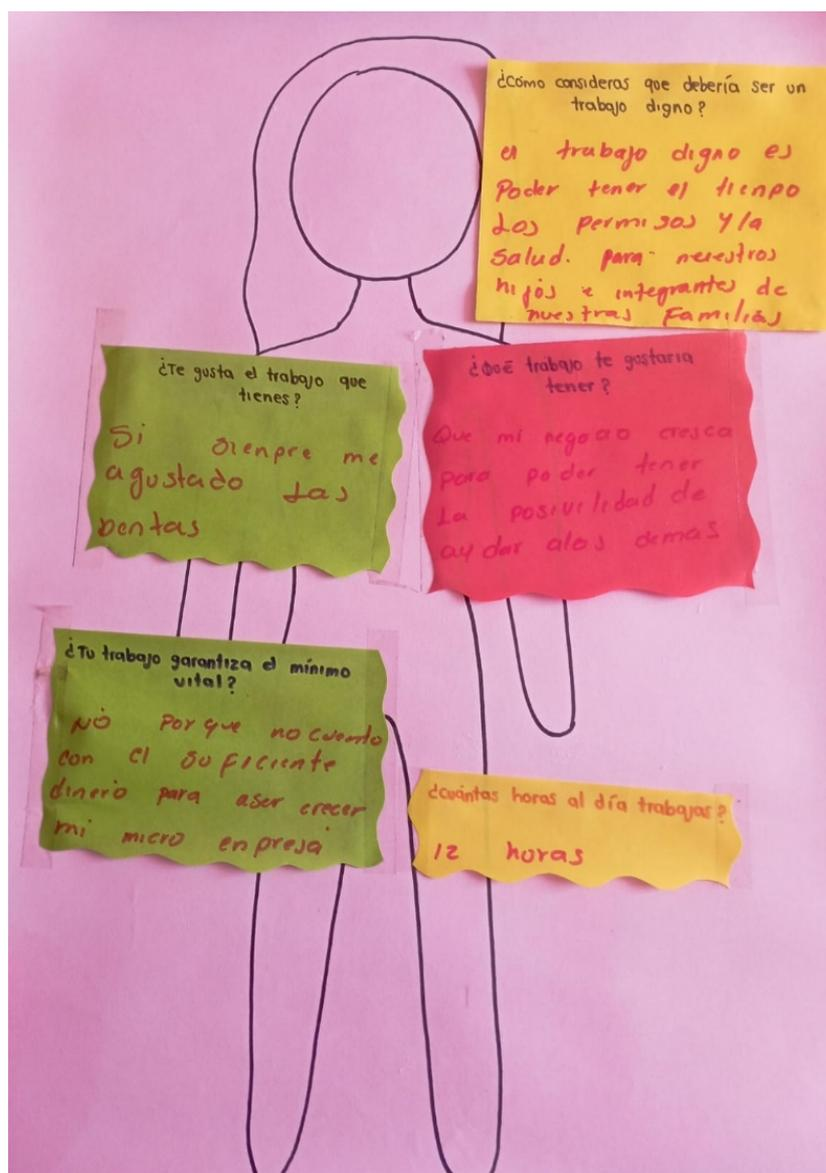 ¿Cómo consideras que debería ser un
trabajo digno?
el trabajo digno es
Poder tener el tienpo
Los permisos y la
Salud. para nuestros
hijos e integrantes de
nuestras Familias
¿Te gusta el trabajo que
tienes?
Si sienpre me
agustado Las
ventas
¿QUÉ trabajo te gustaria
tener?
Que mi negocio cresca
para poder tener
La posivilidad de
aydar alos demas
¿Tu trabajo garantiza el mínimo
vital?
NO Por que no cuento
con el suficiente
dinero para aser crecer
mi micro enpresa
¿cuántas horas al día trabajas?
12 horas